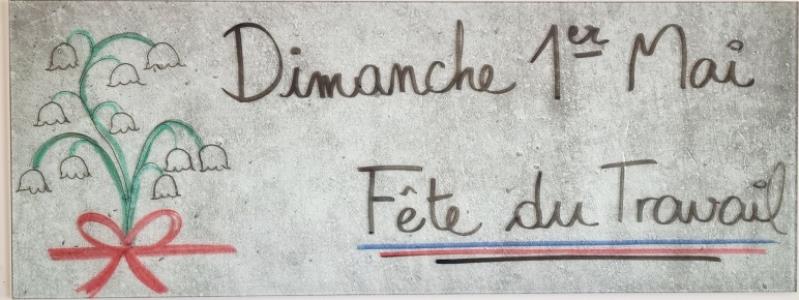 Dimanche 1er Mai
Fête du Travail